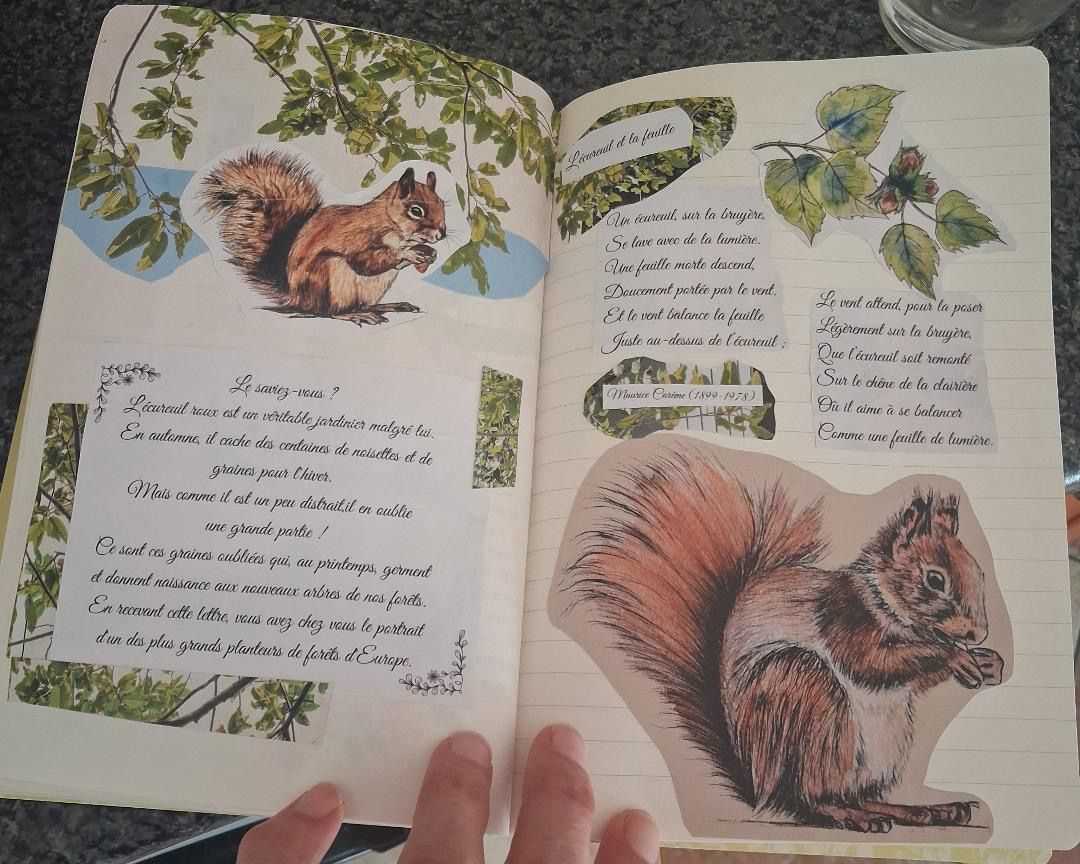 Le saviez-vous ?
L'écureuil roux est un véritable jardinier malgré lui.
En automne, il cache des centaines de noisettes et de
graines pour l'hiver.
Mais comme il est un peu distrait,il en oublie
une grande partie !
Ce sont ces graines oubliées qui, au printemps, germent
et donnent naissance aux nouveaux arbres de nos forêts.
En recevant cette lettre, vous avez chez vous le portrait
d'un des plus grands planteurs de forêts d'Europe.
L'écureuil et la feuille
Un écureuil, sur la bruyère,
Se lave avec de la lumière.
Une feuille morte descend,
Doucement portée par le vent.
Et le vent balance la feuille
Juste au-dessus de l'écureuil ;
Le vent attend, pour la poser
Légèrement sur la bruyère,
Que l'écureuil soit remonté
Sur le chêne de la clairière
Où il aime à se balancer
Comme une feuille de lumière.
Maurice Carême (1899-1978)